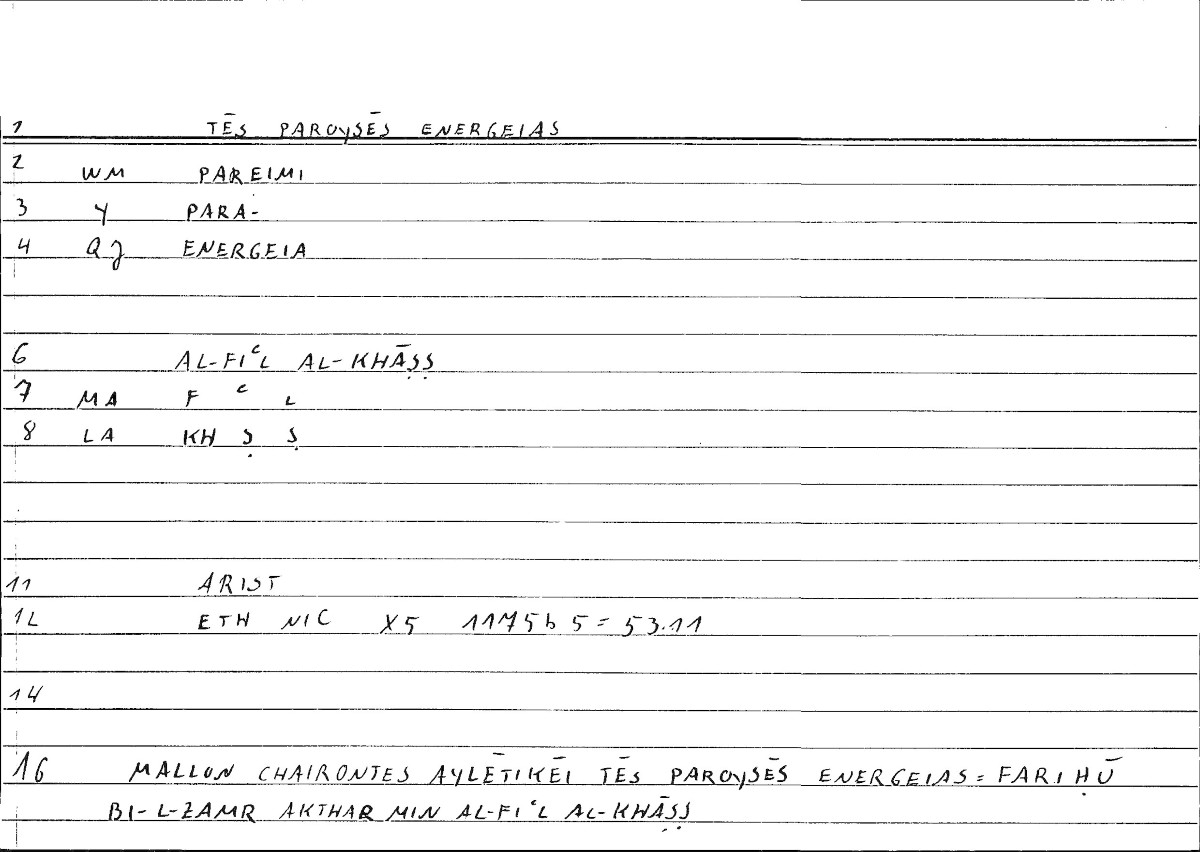 1 TĒS PAROYSĒS ENERGEIAS
2 WM PAREIMI
3 Y PARA-
4 QJ ENERGEIA
6 AL-FIʿL AL-KHĀṢṢ
7 MA F ʿ L
8 LA KH Ṣ Ṣ
11 ARIST
12 ETH NIC X5 1175b 5 = 53.11
14
16 MALLON CHAIRONTES AYLĒTIKĒI TĒS PAROYSĒS ENERGEIAS = FARIḤŪ
BI-L-ZAMR AKTHAR MIN AL-FIʿL AL-KHĀṢṢ